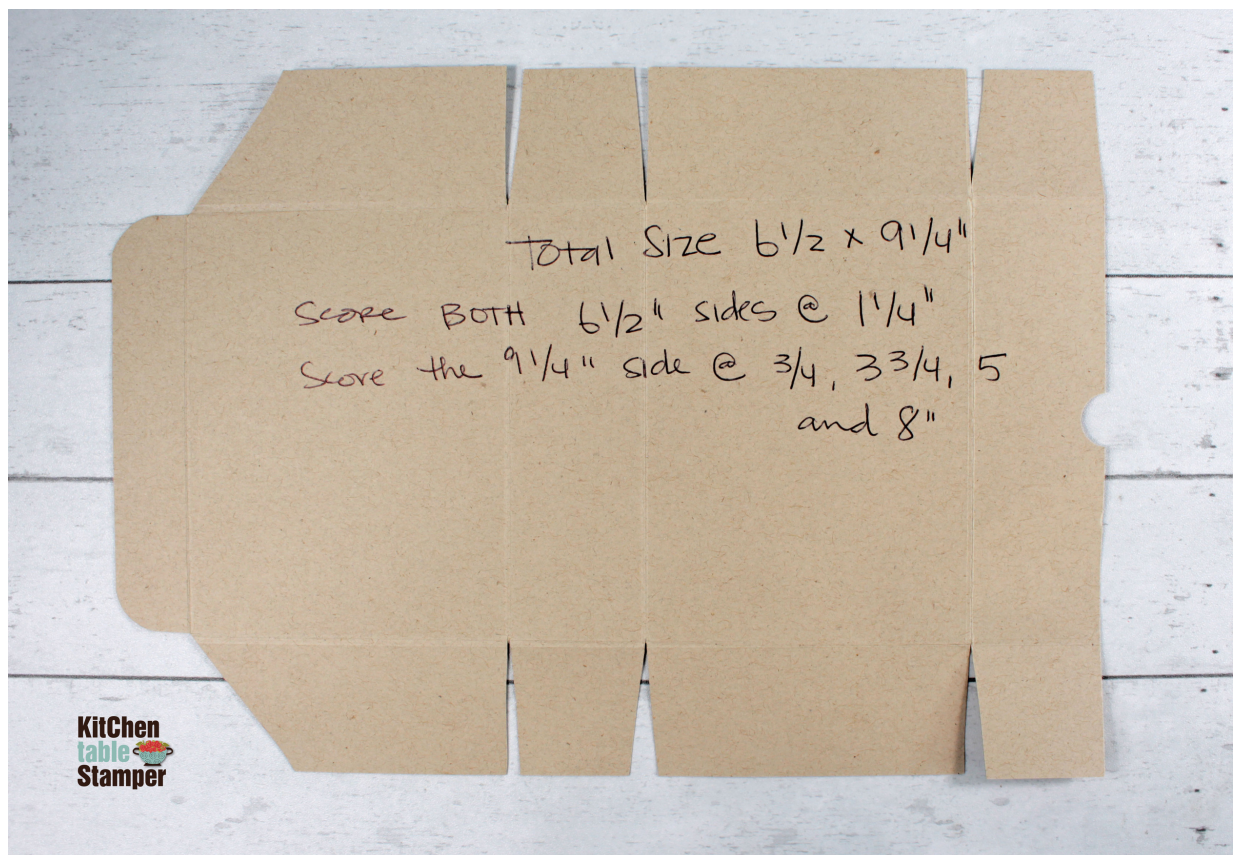 Total Size 6 1/2 x 9 1/4"
Score BOTH 6 1/2" sides @ 1 1/4"
Score the 9 1/4" side @ 3/4, 3 3/4, 5
and 8"
KitChen
table
Stamper